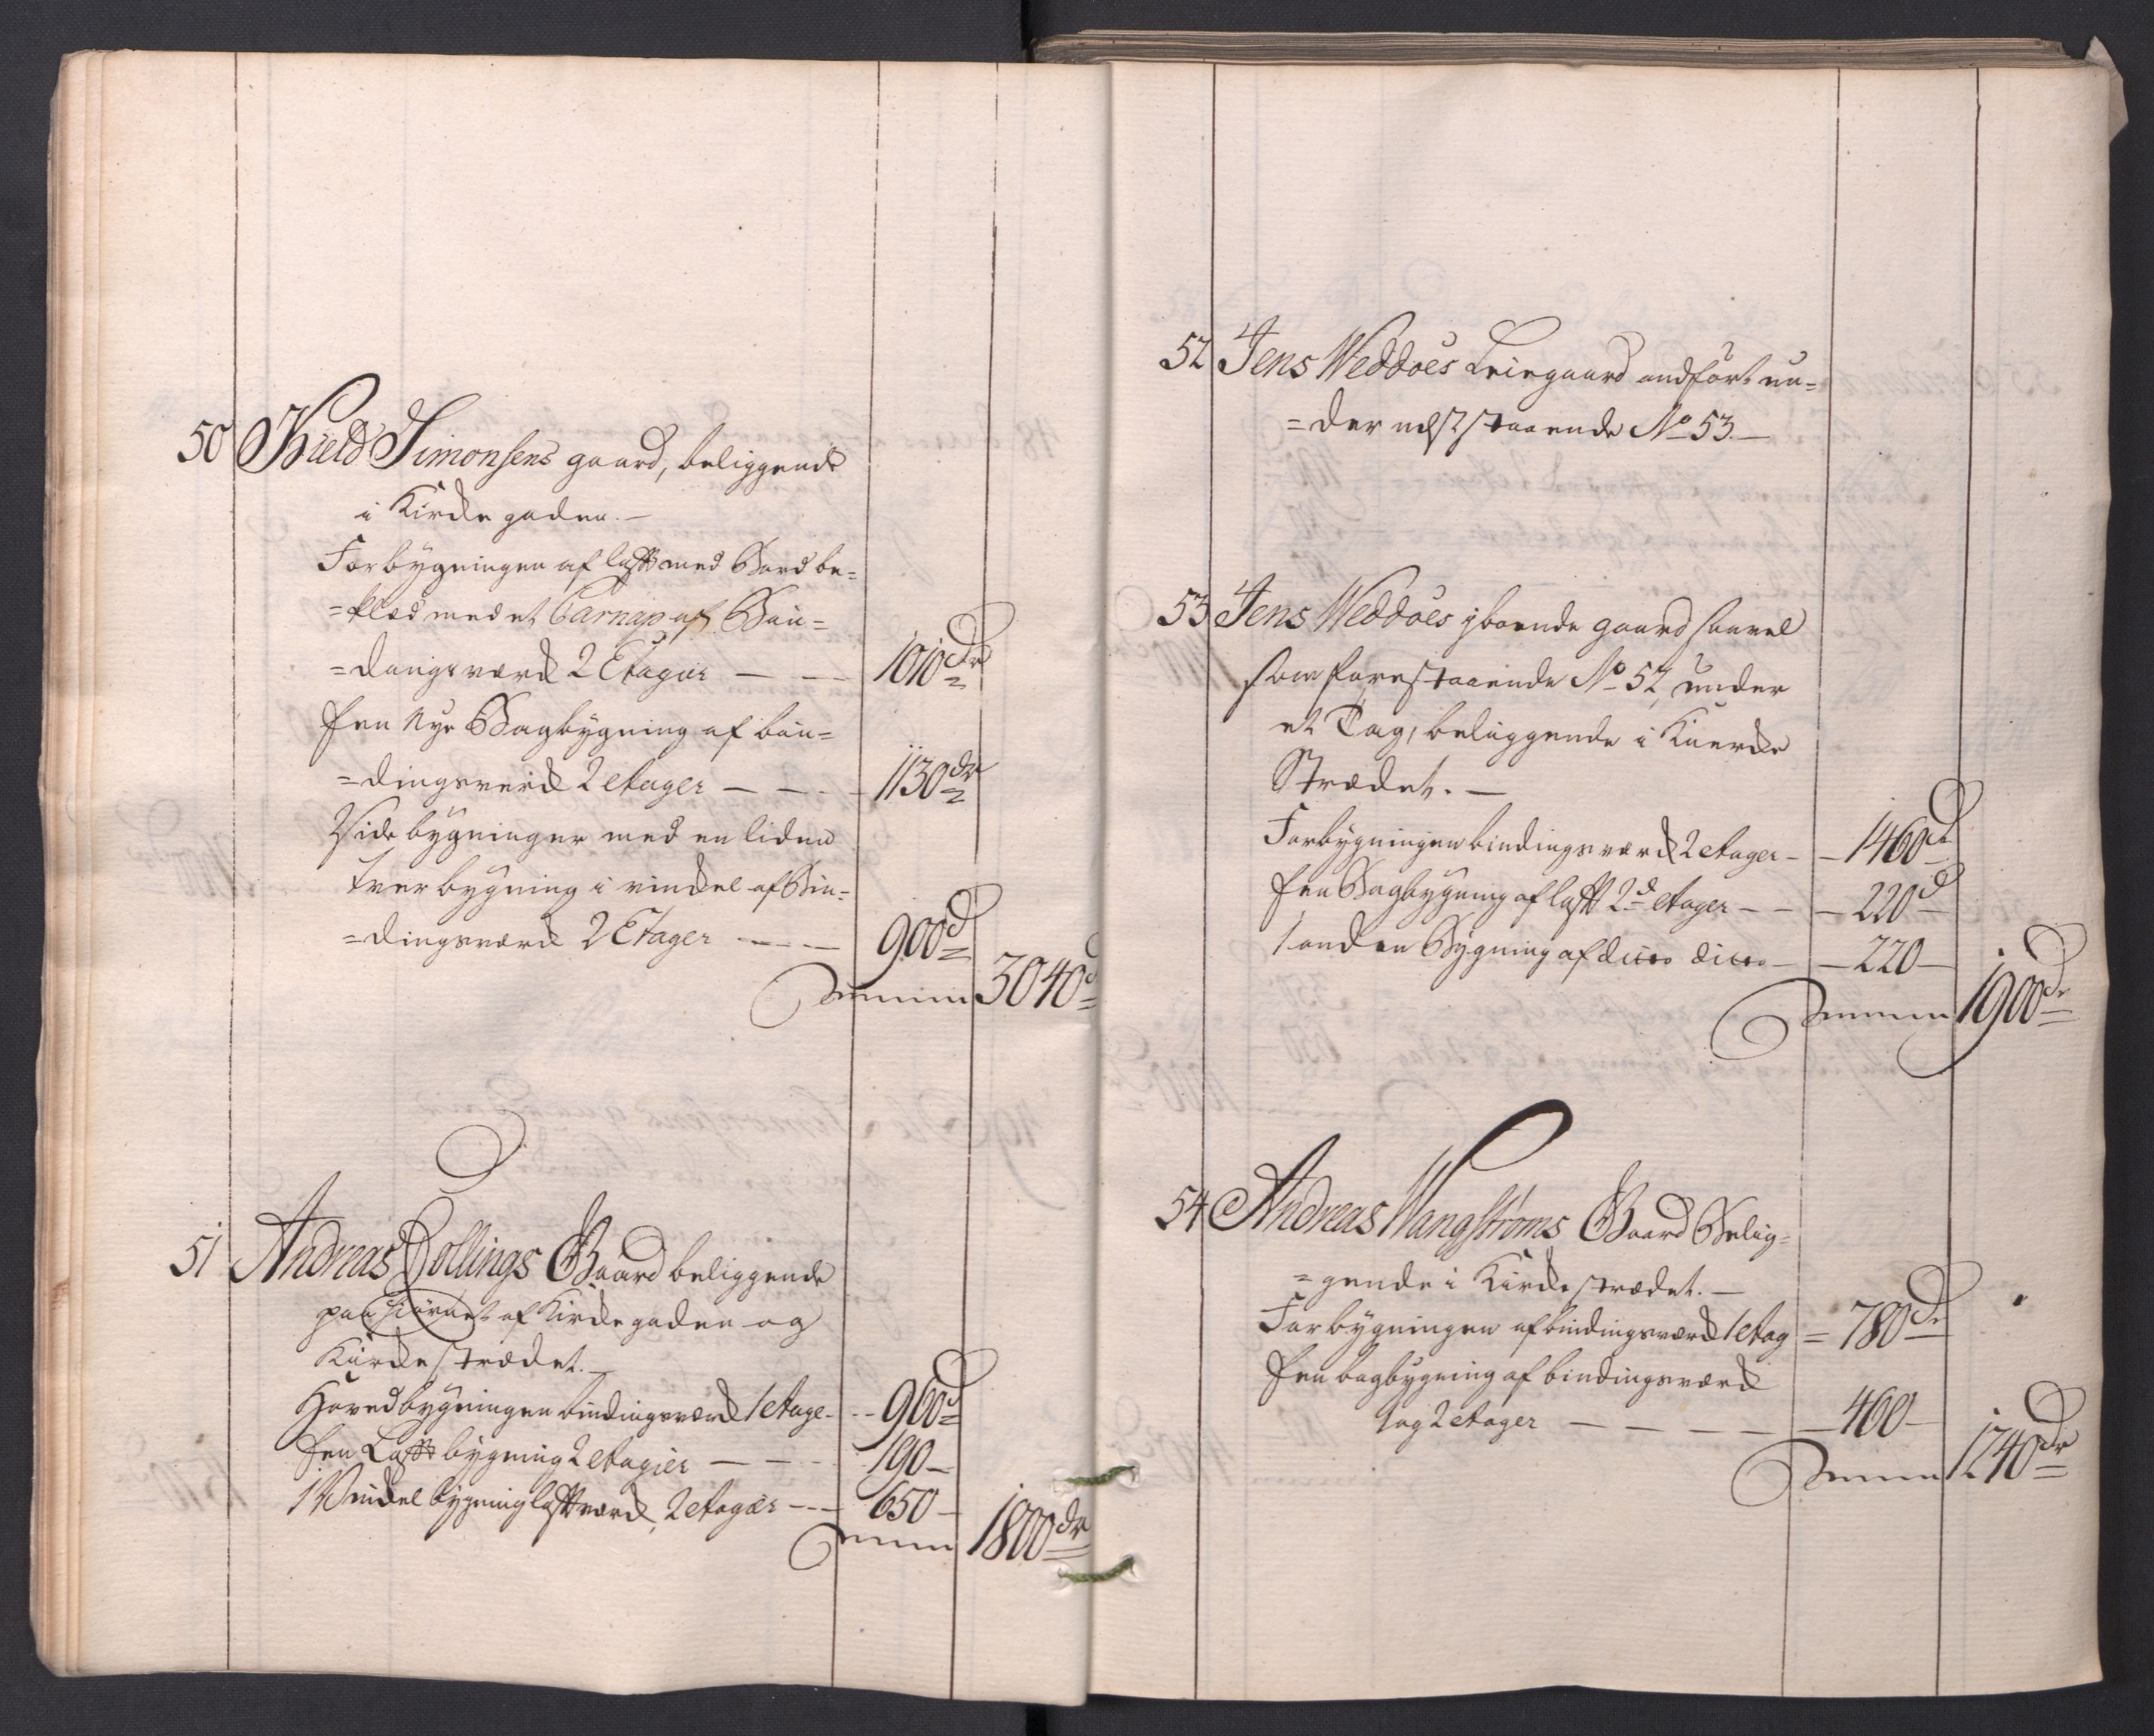 50 Kield Simonsens gaard, beliggende
i Kirke gaden. —
Forbygningen af laft med Bord be=
=klæd med et Carnap af Bin=
=dingsværk 2 Etager — — 1010 dr
Een Nye Bagbygning af bin=
=dingsverk 2 etager — — 1130 dr
Side bygninger med en liden
tver bygning i vinckel af Bin=
=dingsværk 2 Etager — — 900 d
Summa 3040 d
51 Andreas Collings Gaard beliggende
paa Hiørnet af Kirkegaden og
Kirkestrædet. —
Hovedbygningen bindingsværk 1 etage - - 960 d
Een Laft bygning 2 etagier — — 190 —
1 Vinckel bygning laftværk, 2 etager --- 650 —
Summa 1800 dr
52 Jens Weddøes Leiegaard andført un=
=der næst staaende No 53. —
53 Jens Weddøes iboende gaard saavel
som forestaaende No 52, under
et Tag, beliggende i Kierke
Strædet. —
Forbygningen bindingsværk 2 etager — 1460 d
Een Bagbygning af laft 2d etager — — 220 d
1 anden Bygning af ditto ditto — 220 —
Summa 1900 dr
54 Andreas Wangstrøms Gaard Belig=
=gende i Kirkestrædet. —
Forbygningen af bindingsværk 1 etag = 780 dr
Een bagbygning af bindingsværk
1 og 2 etager — — — — 460 —
Summa 1240 dr